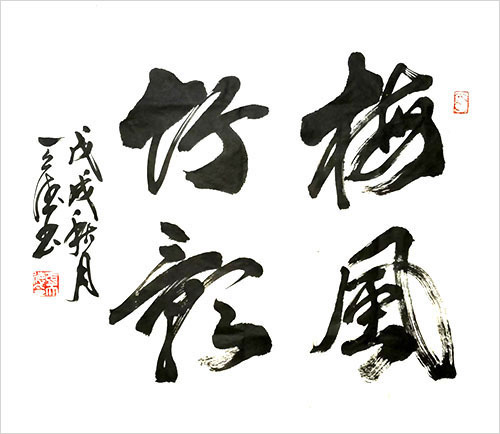 梅風
竹韻
戊戌秋月